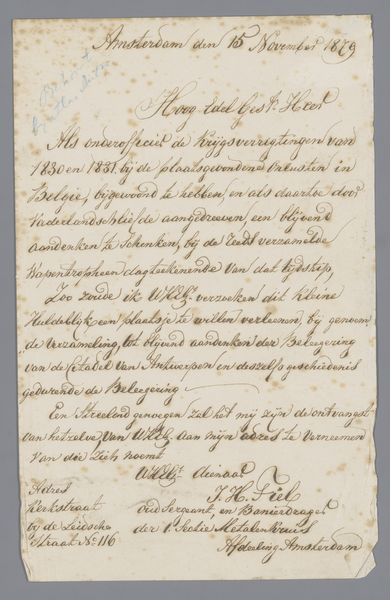 Amsterdam den 15 November 1879
Hoog Edel Gest. Heer
Als onderofficier de krijgsverrigtingen van
1830 en 1831, bij de plaatsgevondene onlusten in
Belgie, bijgewoond te hebben, en als daartoe door
Vaderlandschliefde aangedreeven, een blijvend
aandenken te schenken, bij de reeds verzamelde
Wapentropheen dagteekenende van dat tijdstip,
Zoo zoude ik UHEG. verzoeken dit kleine
Huldeblijk een plaatsje te willen verleenen, bij genoem
de Verzameling, tot blijvend aandenken der Beleegering
van de Citadel van Antwerpen en deszelfs geschiedenis
gedurende de Beleegering.
Een Streelend genoegen zal het mij zijn de ontvangst
van hetzelve van UHEG. aan mijn adres te Verneemen
Van die Zich noemt
UHEG. dienaar
J. H. Fiel
Adres
Kerkstraat
bij de Leidsche
Straat No. 116
oud Sergeant, en Banierdrager
der 1e Sectie Metalen Kruis
Afdeeling Amsterdam